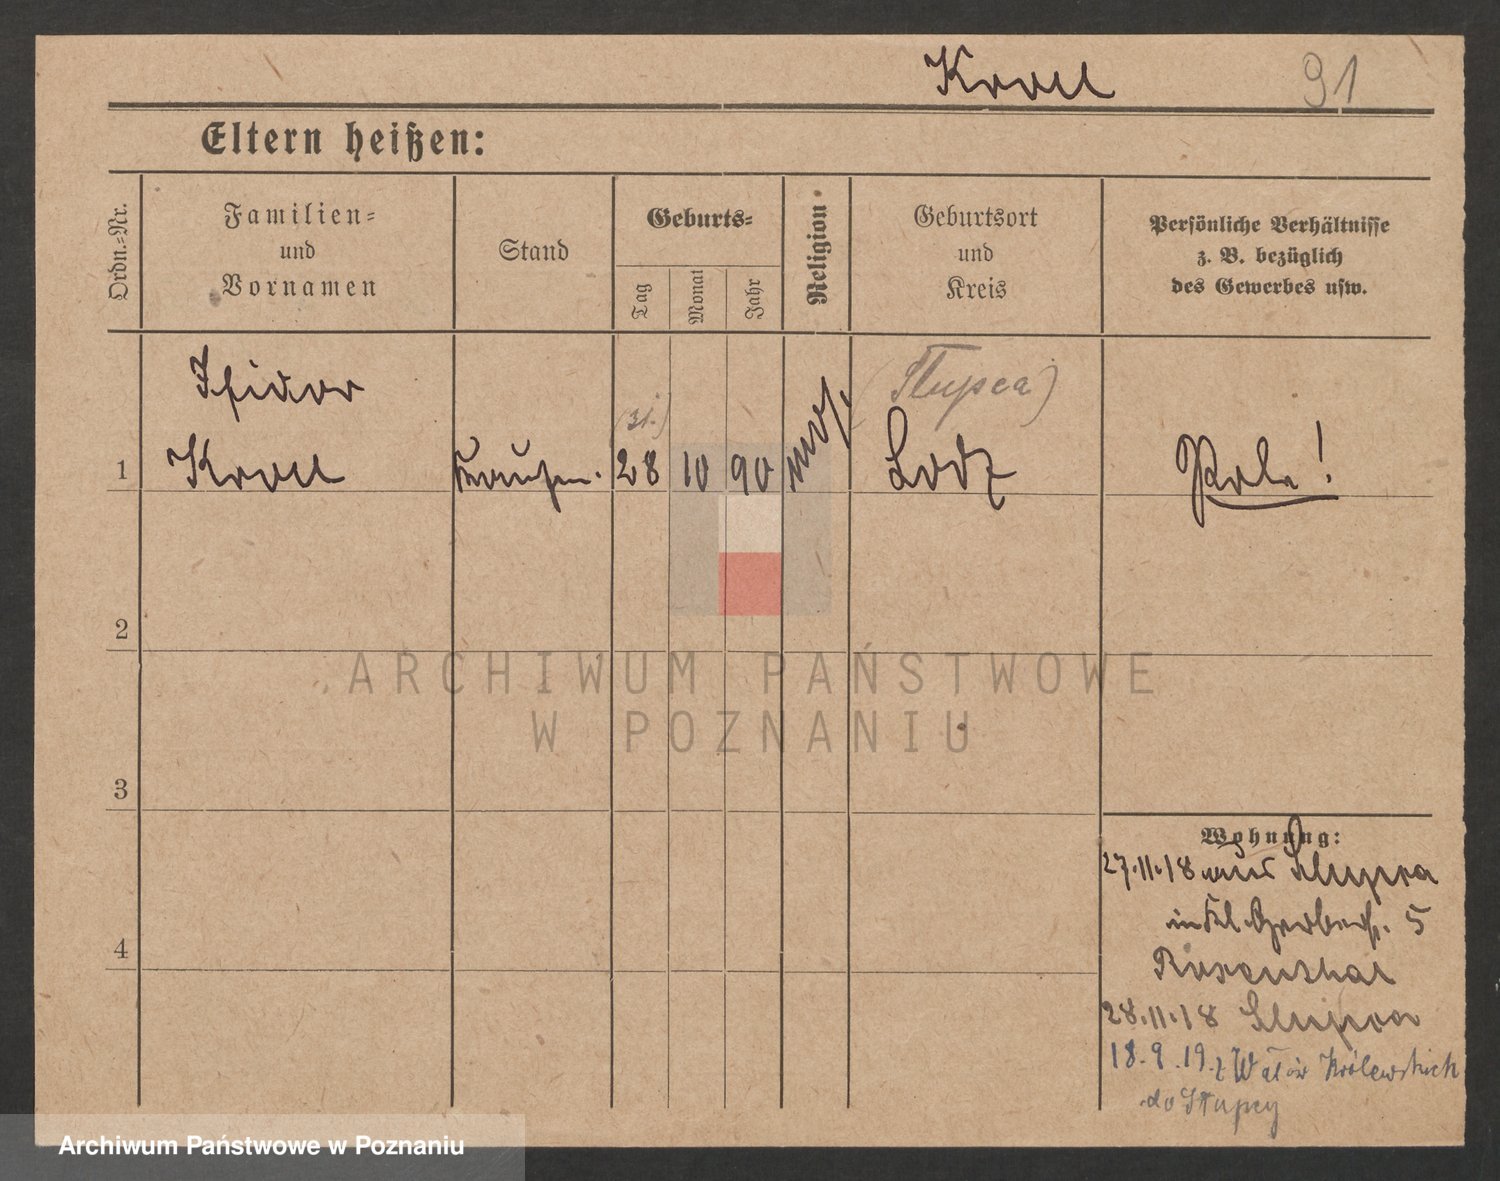 Kroll 91
Eltern heißen:
Ordn.-Nr.
Familien-
und
Vornamen
Stand
Geburts-
Tag
Monat
Jahr
Religion
Geburtsort
und
Kreis
Persönliche Verhältnisse
z. B. bezüglich
des Gewerbes usw.
Isidor
(31.)
(Słupca)
1 Kroll Kaufm. 28 10 90 mos. Lodz Pole!
2
3
4
Wohnung:
27.11.18 aus Slupca
in Kl. Gerberstr. 5
Rosenthal
28.11.18 Slupca
18.9.19. z Wałów Królewskich
do Słupcy
ARCHIWUM PAŃSTWOWE
W POZNANIU
Archiwum Państwowe w Poznaniu